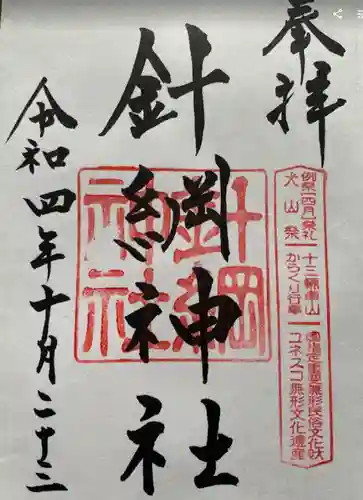 奉拝
例祭(四月)祭礼
犬山祭
十三輌車山
からくり行事
国指定重要無形民俗文化財
ユネスコ無形文化遺産
針綱神社
針綱神社
令和四年十月二十三